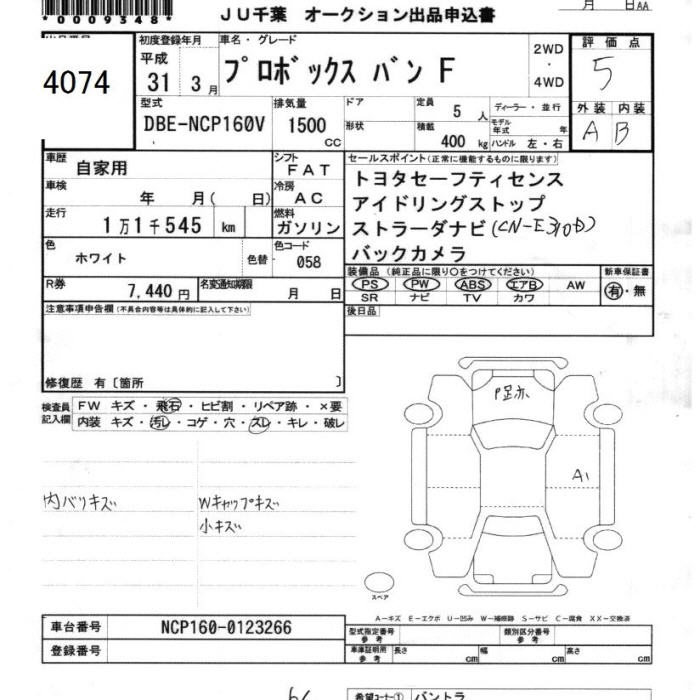 *0009348*
JU千葉 オークション出品申込書
月 日AA
4074
初度登録年月
平成
31 3月
車名・グレード
プロボックス バン F
2WD
・
4WD
評価点
5
外装 内装
A B
型式
DBE-NCP160V
排気量
1500
CC
ドア
形状
定員
5人
積載
400 kg
ディーラー・並行
モデル年式 年
ハンドル 左・右
車歴
自家用
シフト
FAT
車検
年 月( 日)
冷房
AC
走行
1万1千545 km
燃料
ガソリン
色
ホワイト
色替
色コード
058
R券
7,440円
名変通知期限
月 日
セールスポイント(正常に機能するものに限ります)
トヨタセーフティセンス
アイドリングストップ
ストラーダナビ(CN-E310D)
バックカメラ
装備品(純正品に限り○をつけてください)
PS PW ABS エアB AW
SR ナビ TV カワ
新車保証書
有・無
後日品
注意事項申告欄(不具合内容等は具体的に記入して下さい)
修復歴 有〔箇所 〕
検査員
記入欄
FW キズ・飛石・ヒビ割・リペア跡・×要
内装 キズ・汚レ・コゲ・穴・スレ・キレ・破レ
内バリキズ
Wキャップキズ
小キズ
A1
スペア
A-キズ E-エクボ U-凹み W-補修跡 S-サビ C-腐食 XX-交換済
車台番号
NCP160-0123266
登録番号
型式指定番号
参考
類別区分番号
参考
車庫証明用
参考
長さ cm
幅 cm
高さ cm
希望コーナー①
バントラ